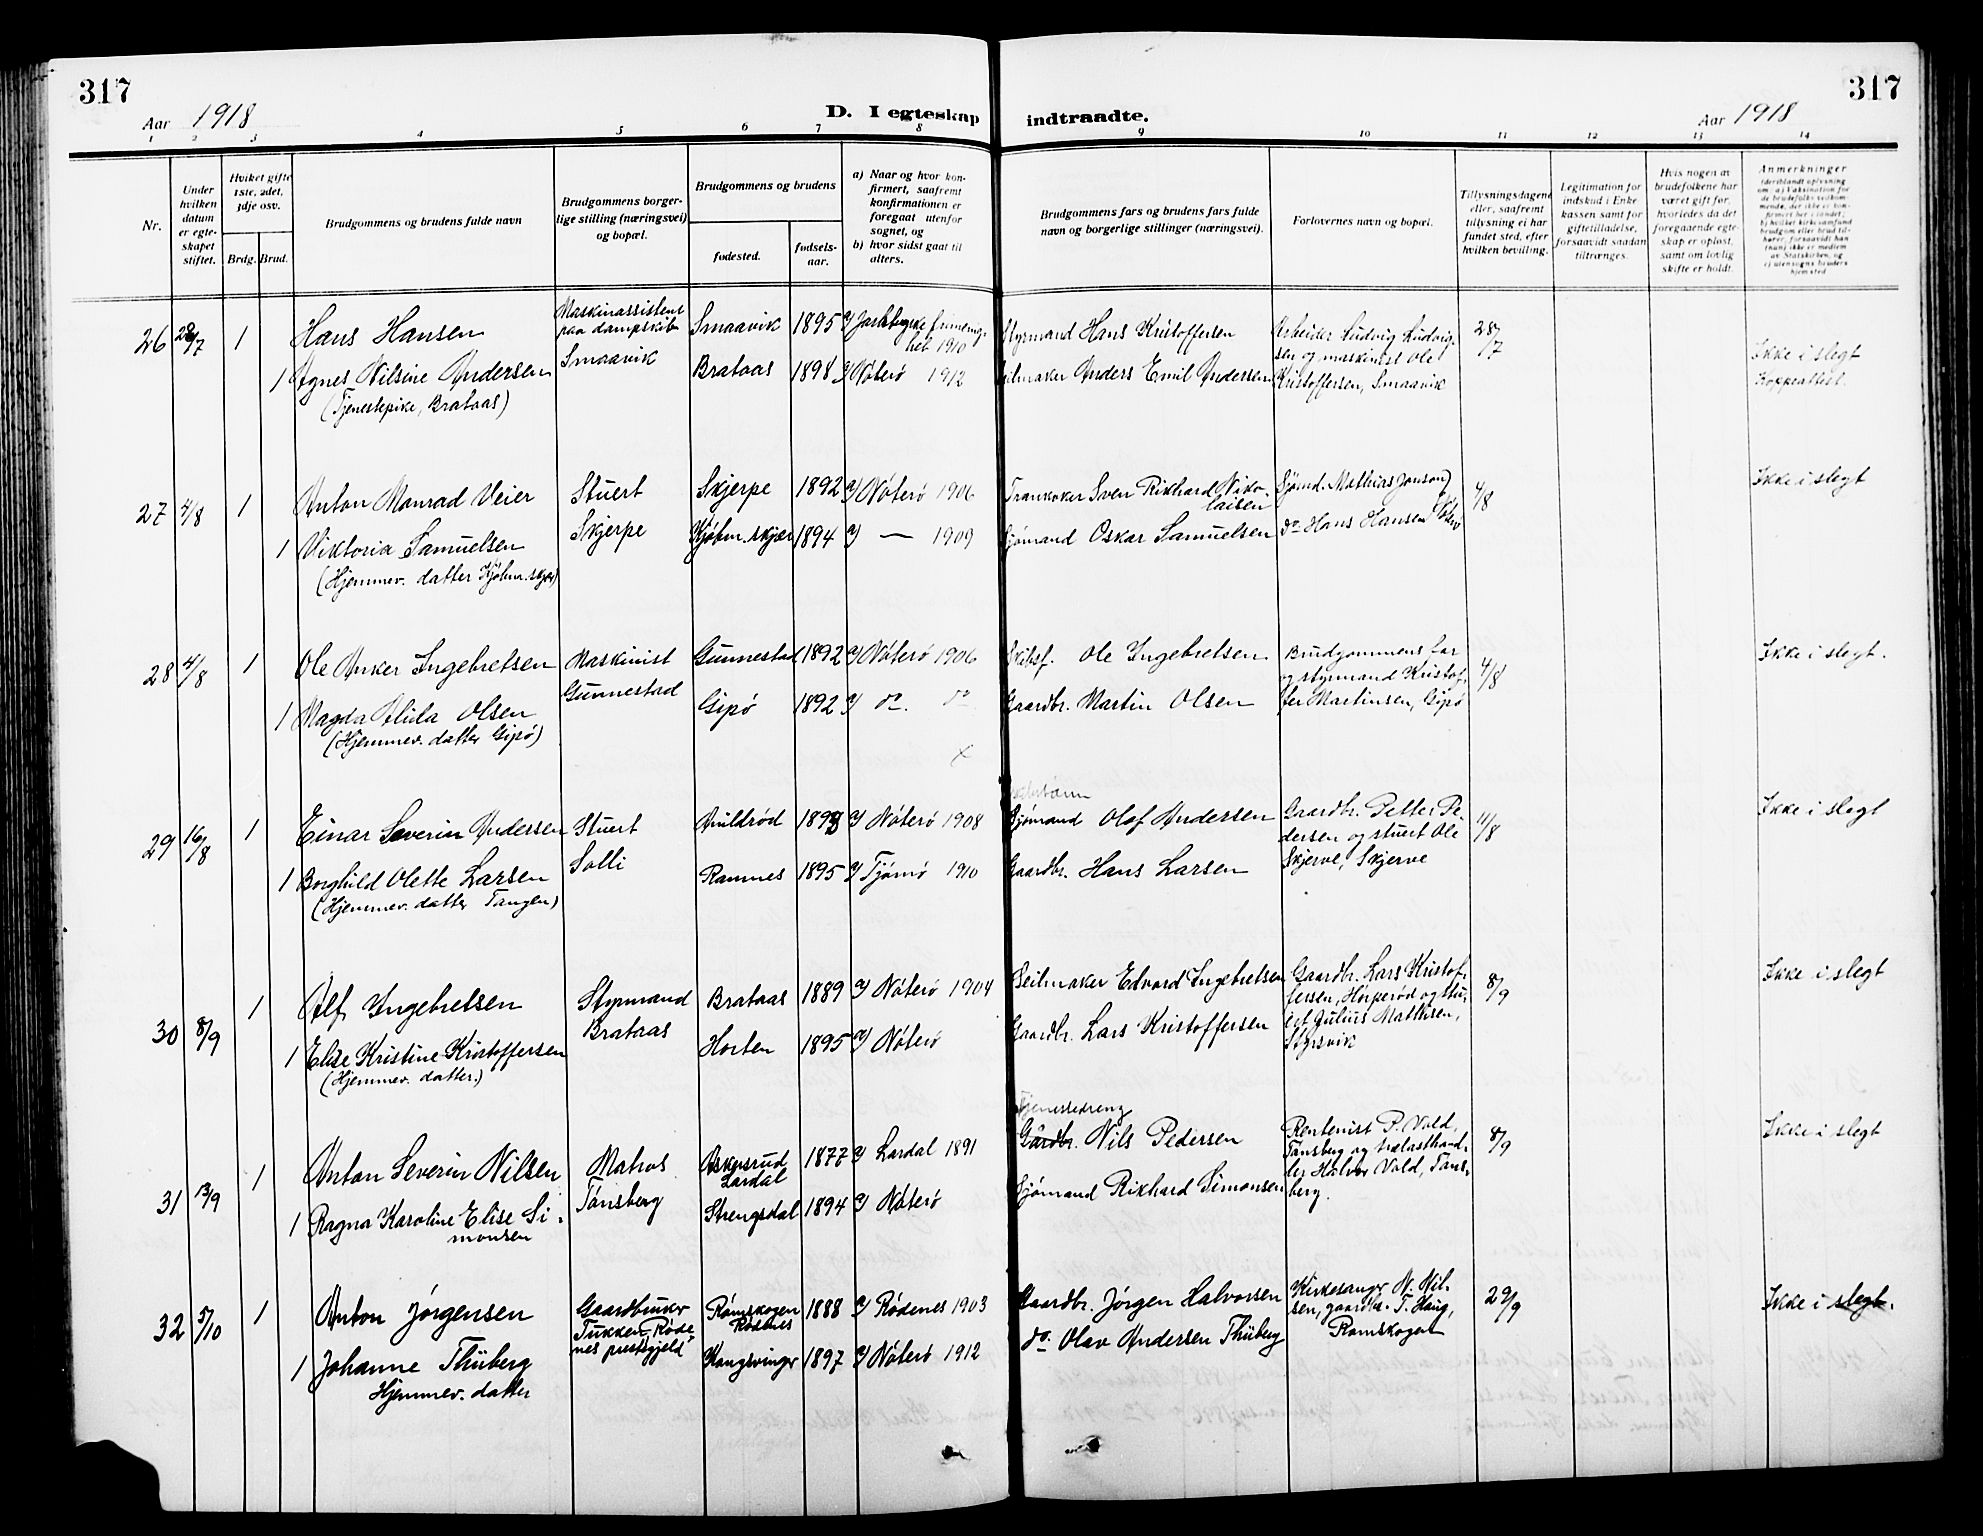 317
Aar 1918
D. I egteskap indtraadte.
Aar 1918
317
1 2 3 4 5 6 7 8 9 10 11 12 13 14
Nr.
Under hvilken datum er egteskapet stiftet.
Hviket gifte 1ste, 2det, 3dje osv.
Brdg. Brud.
Brudgommens og brudens fulde navn
Brudgommens borgerlige stilling (næringsvei) og bopæl.
Brudgommens og brudens
fødested.
fødselsaar.
a) Naar og hvor konfirmert, saafremt konfirmationen er foregaat utenfor sognet, og
b) hvor sidst gaat til alters.
Brudgommens fars og brudens fars fulde navn og borgerlige stillinger (næringsvei).
Forlovernes navn og bopæl.
Tillysningsdagene eller, saafremt tillysning ei har fundet sted, efter hvilken bevilling.
Legitimation for indskud i Enkekassen samt for giftetilladelse, forsaavidt saadan tiltrænges.
Hvis nogen av brudefolkene har været gift før, hvorledes da det foregaaende egteskap er opløst, samt om lovlig skifte er holdt.
Anmerkninger
26 28/7 1 Hans Hansen
Maskinassistent paa dampskib
Smaavik
Smaavik 1895
1910
Styrmand Hans Kristoffersen
Arbeider Ludvig Ludvigsen og maskinist Ole Kristoffersen, Smaavik
28/7
Ikke i slegt
Koppeattest.
1 Agnes Nilsine Andersen
(Tjenestepike, Brataas)
Brataas 1898 Nøterø 1912
Seilmaker Anders Emil Andersen
27 4/8 1 Anton Monrad Veier
Stuert
Skjerpe
Skjerpe 1892 Nøterø 1906
Trankoker Sven Rikhard Nikolaisen
Sjømd. Mathias Jonson
do Hans Hansen
4/8
Ikke i slegt
1 Viktoria Samuelsen
(Hjemmev. datter Kjøbm.skjær)
Kjøbm.skjær 1894 — 1909
Sjømand Oskar Samuelsen
28 4/8 1 Ole Anker Ingebretsen
Maskinist
Gunnestad
Gunnestad 1892 Nøterø 1906
Skibsf. Ole Ingebretsen
Brudgommens far og styrmand Kristoffer Martinsen, Gipø
4/8
Ikke i slegt.
1 Magda Alida Olsen
(Hjemmev. datter Gipø)
Gipø 1892 do. do
Gaardbr. Martin Olsen
x
29 16/8 1 Einar Severin Andersen
Stuert
Solli
Buldrød 1893 Nøterø 1908
Sjømand Olaf Andersen
Gaardbr. Petter Pedersen og stuert Ole Skjerve, Skjerve
11/8
Ikke i slegt
1 Borghild Olette Larsen
(Hjemmev. datter Tangen)
Ramnes 1895 Tjømø 1910
Gaardbr. Hans Larsen
30 8/9 1 Alf Ingebretsen
Styrmand
Brataas
Brataas 1889 Nøterø 1904
Seilmaker Edvard Ingebretsen
Gaardbr. Lars Kristoffersen, Herperød og stuert Julius Mathisen,
8/9
Ikke i slegt
1 Elise Kristine Kristoffersen
(Hjemmev. datter.)
Horten 1895 Nøterø
Gaardbr. Lars Kristoffersen
31 13/9 1 Anton Severin Nilsen
Matros
Tønsberg
Askjersrud Lardal 1877 Lardal 1891
Tjenestedreng
Gårdbr. Nils Pedersen
Rentenist P. Vold, Tønsberg og trælasthandler Halvor Vold, Tønsberg.
8/9
Ikke i slegt
1 Ragna Karoline Elise Simonsen
Strengsdal 1894 Nøterø
Sjømand Rikhard Simonsen
32 5/10 1 Anton Jørgensen
Gaardbruker
Tukken, Rødenes prestgjeld
Rømskogen Rødenes 1888 Rødenes 1903
Gaardbr. Jørgen Halvorsen
Kirkesanger N. Nilsen, gaardbr. T. Haug, Rømskogen
29/9
Ikke i slegt.
1 Johanne Thüberg
Hjemmev. datter
Kongsvinger 1897 Nøterø 1912
do. Olav Andersen Thüberg